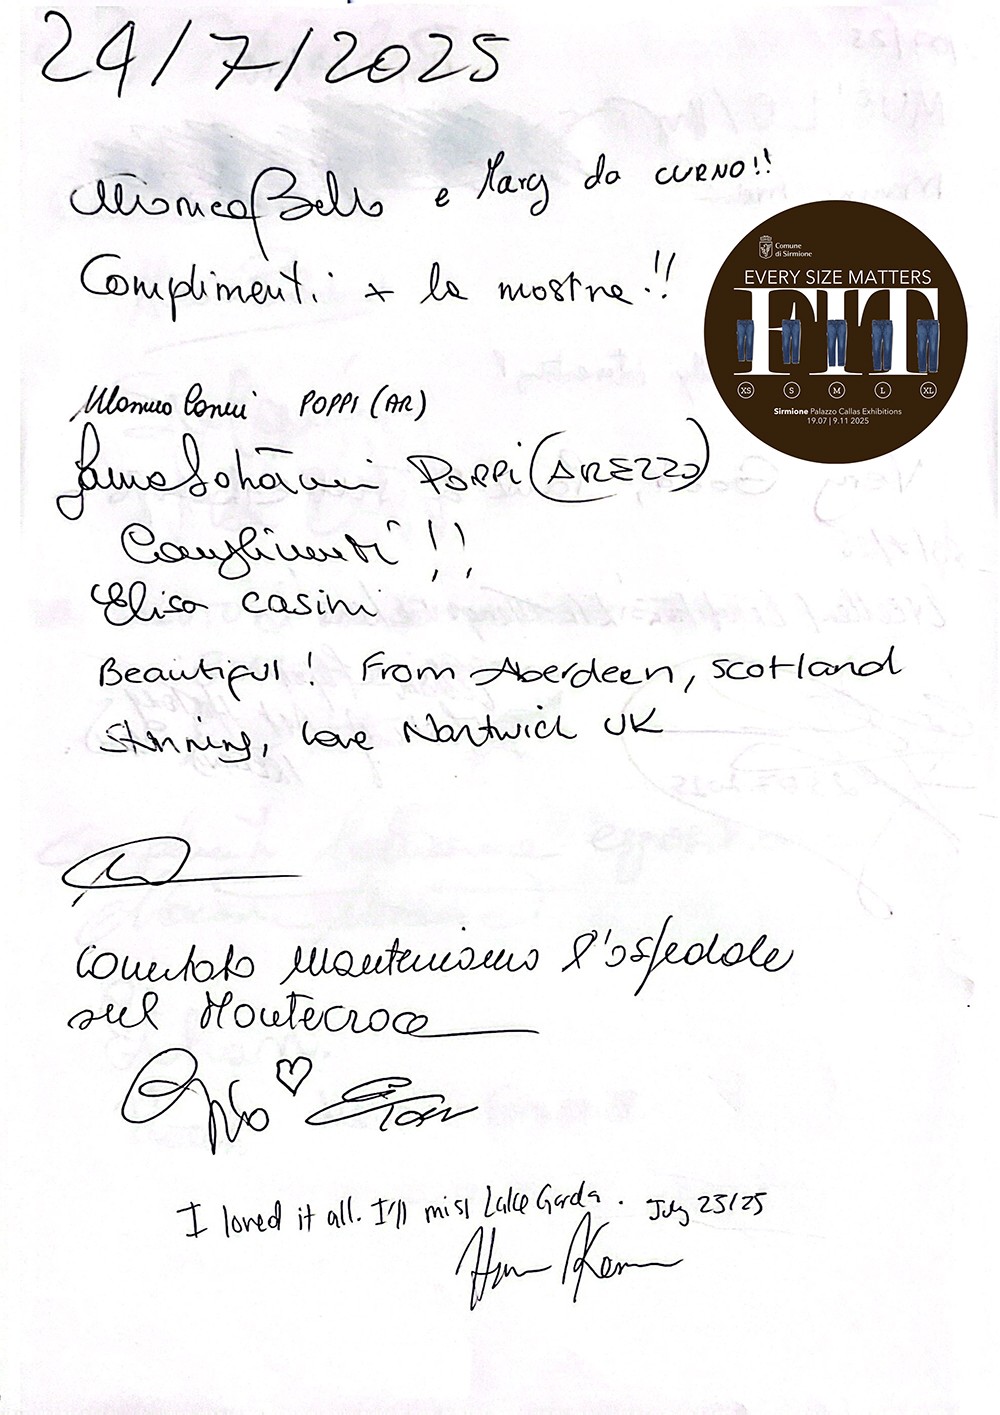 24/7/2025
Monica Bello e Mary da CURNO!!
Complimenti x la mostra!!
Comune
di Sirmione
EVERY SIZE MATTERS
FIT
XS S M L XL
Sirmione Palazzo Callas Exhibitions
19.07 | 9.11 2025
POPPI (AR)
POPPI (AREZZO)
Complimenti!!
Elisa Casini
Beautiful! From Aberdeen, Scotland
Stunning, love Nantwich UK
Comitato Manteniamo l'ospedale
sul Montecroce
I loved it all. I'll miss Lake Garda. July 25/25